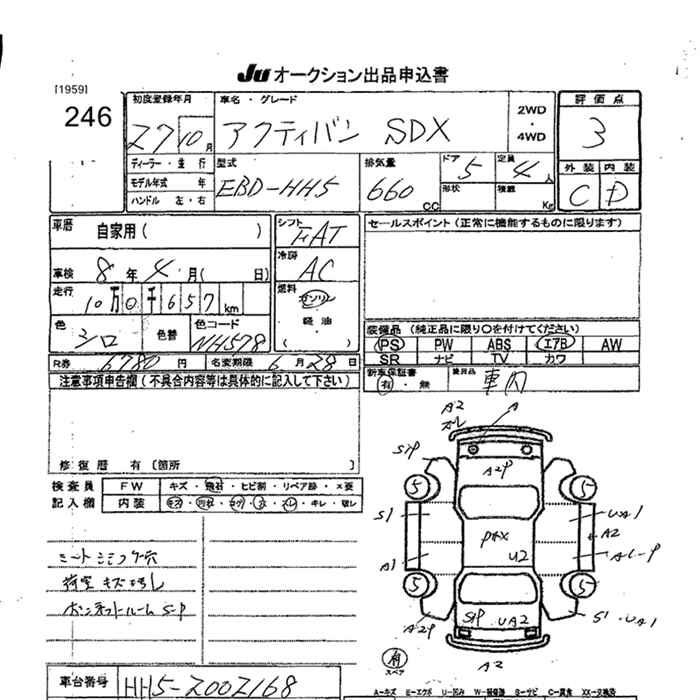 JU オークション出品申込書
[1959]
246
初度登録年月
27 10 月
車名・グレード
アクティバン SDX
2WD
・
4WD
評価点
3
ディーラー・並行
モデル年式 年
ハンドル 左・右
型式
EBD-HH5
排気量
660 CC
ドア 5
定員 4 人
形状
積載 Kg
外装 内装
C D
車歴 自家用 ( )
シフト FAT
セールスポイント (正常に機能するものに限ります)
車検 8 年 4 月 ( 日)
冷房 AC
走行 10 万 0 千 6 5 7 km
燃料 ガソリン
軽油
( )
色 シロ 色替
色コード NH578
装備品 (純正品に限り○を付けてください)
PS PW ABS エアB AW
SR ナビ TV カワ
R券 6780 円 名変期限 6 月 28 日
新車保証書 有・無
車内
注意事項申告欄 (不具合内容等は具体的に記入して下さい)
修復歴 有 (箇所 )
検査員
記入欄
FW キズ・飛石・ヒビ割・リペア跡・X要
内装 スレ・キレ・
シートシミコゲ穴
荷室キズ
ボンネットルームS-P
A2 A
S1P A2P
5 5
S1 UA1
A2
PAX
A1 U2
5 5
S1P UA2 S1・UA1
A2P
A2
有
スペア
車台番号 HH5-2002168
A−キズ E−エクボ